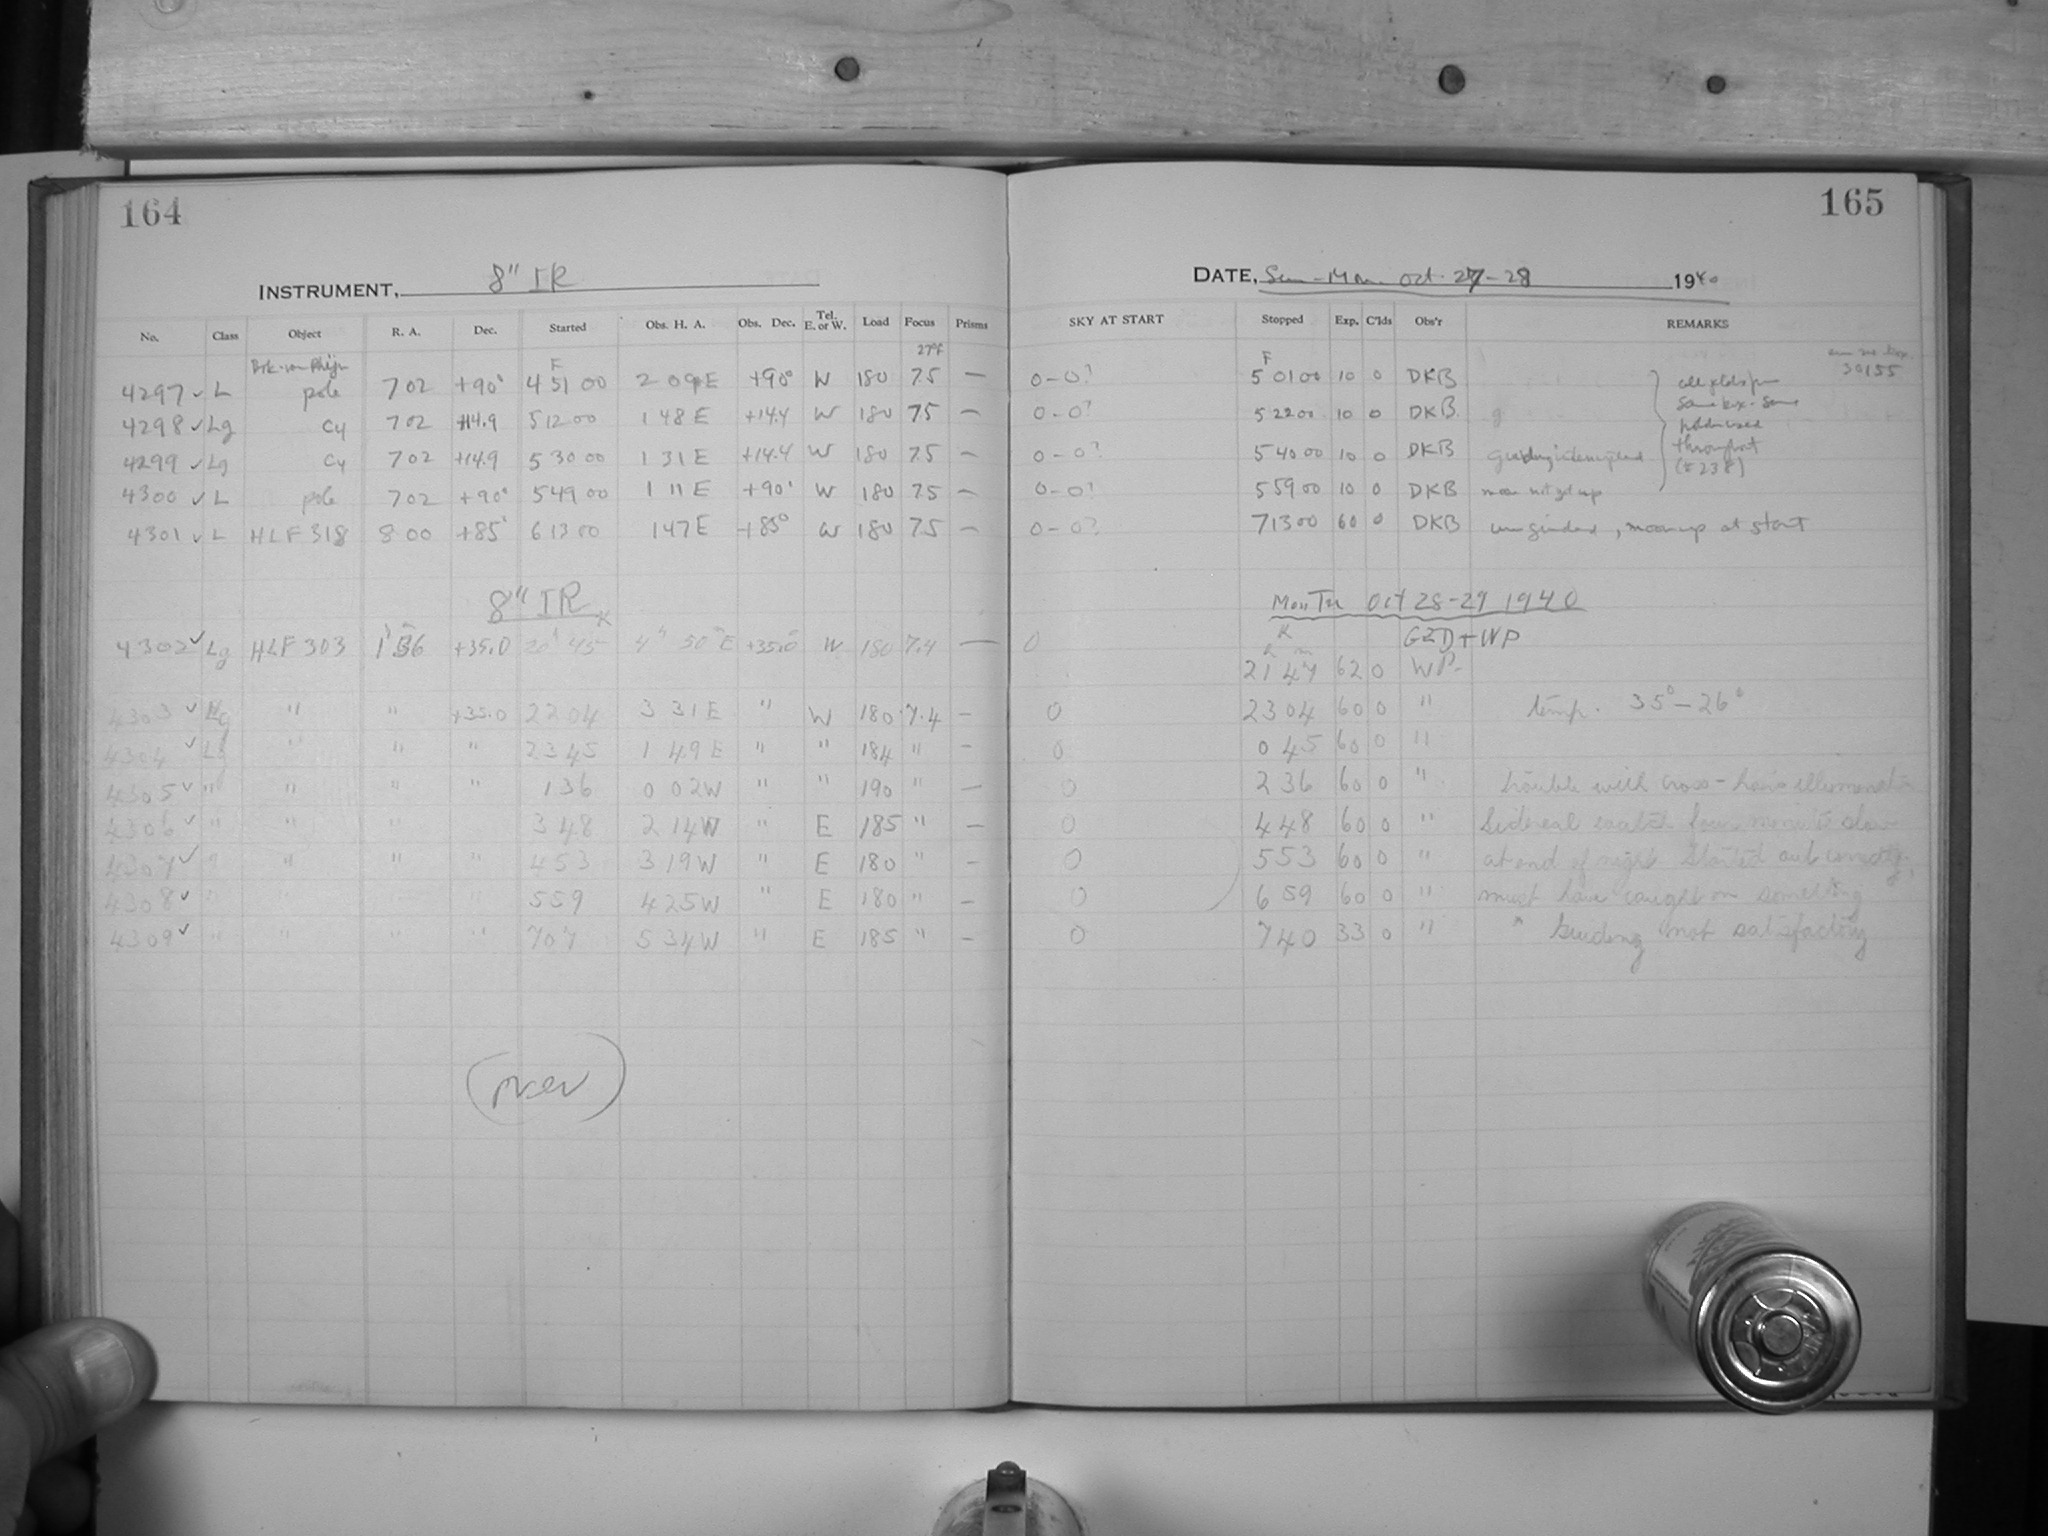 164
INSTRUMENT, 8" IR
No. Class Object R. A. Dec. Started Obs. H. A. Obs. Dec. Tel. E. or W. Load Focus Prisms
27°F
4297 ✓ L pole 7 02 +90° F 4 51 00 2 09 E +90° W 180 75 —
4298 ✓ Lg Cy 7 02 +14.9 5 12 00 1 48 E +14.4 W 180 75 —
4299 ✓ Lg Cy 7 02 +14.9 5 30 00 1 31 E +14.4 W 180 75 —
4300 ✓ L pole 7 02 +90° 5 49 00 1 11 E +90° W 180 75 —
4301 ✓ L HLF 318 8 00 +85° 6 13 00 1 47 E +85° W 180 75 —
8" IR
4302 ✓ Lg HLF 303 1 56 +35.0 20 45 4 50 E +35.0 W 180 7.4 —
4303 ✓ Lg " " +35.0 22 04 3 31 E " W 180 7.4 —
4304 ✓ Lg " " " 23 45 1 49 E " " 184 " —
4305 ✓ " " " " 1 36 0 02 W " " 190 " —
4306 ✓ " " " " 3 48 2 14 W " E 185 " —
4307 ✓ " " " " 4 53 3 19 W " E 180 " —
4308 ✓ 5 59 4 25 W " E 180 " —
4309 ✓ " " " " 7 07 5 34 W " E 185 " —
(over)
165
DATE, Sun - Mon Oct. 27-28 1940
SKY AT START Stopped Exp. C'lds Obs'r REMARKS
30155
0-0? F 5 01 00 10 0 DKB
0-0? 5 22 00 10 0 DKB g
0-0? 5 40 00 10 0 DKB
0-0? 5 59 00 10 0 DKB moon not yet up
0-0? 7 13 00 60 0 DKB unguided, moon up at start
same box - same
throughout
(#238)
Mon Tu Oct 28-29 1940
0 GZD + WP
21 47 62 0 WP
0 23 04 60 0 " temp. 35° - 26°
0 0 45 60 0 "
0 2 36 60 0 " trouble with cross-hair illumination
0 4 48 60 0 " Sidereal slow
0 5 53 60 0 " at end of night. Started out correctly,
0 6 59 60 0 " must have caught on something
0 7 40 33 0 " Guiding not satisfactory